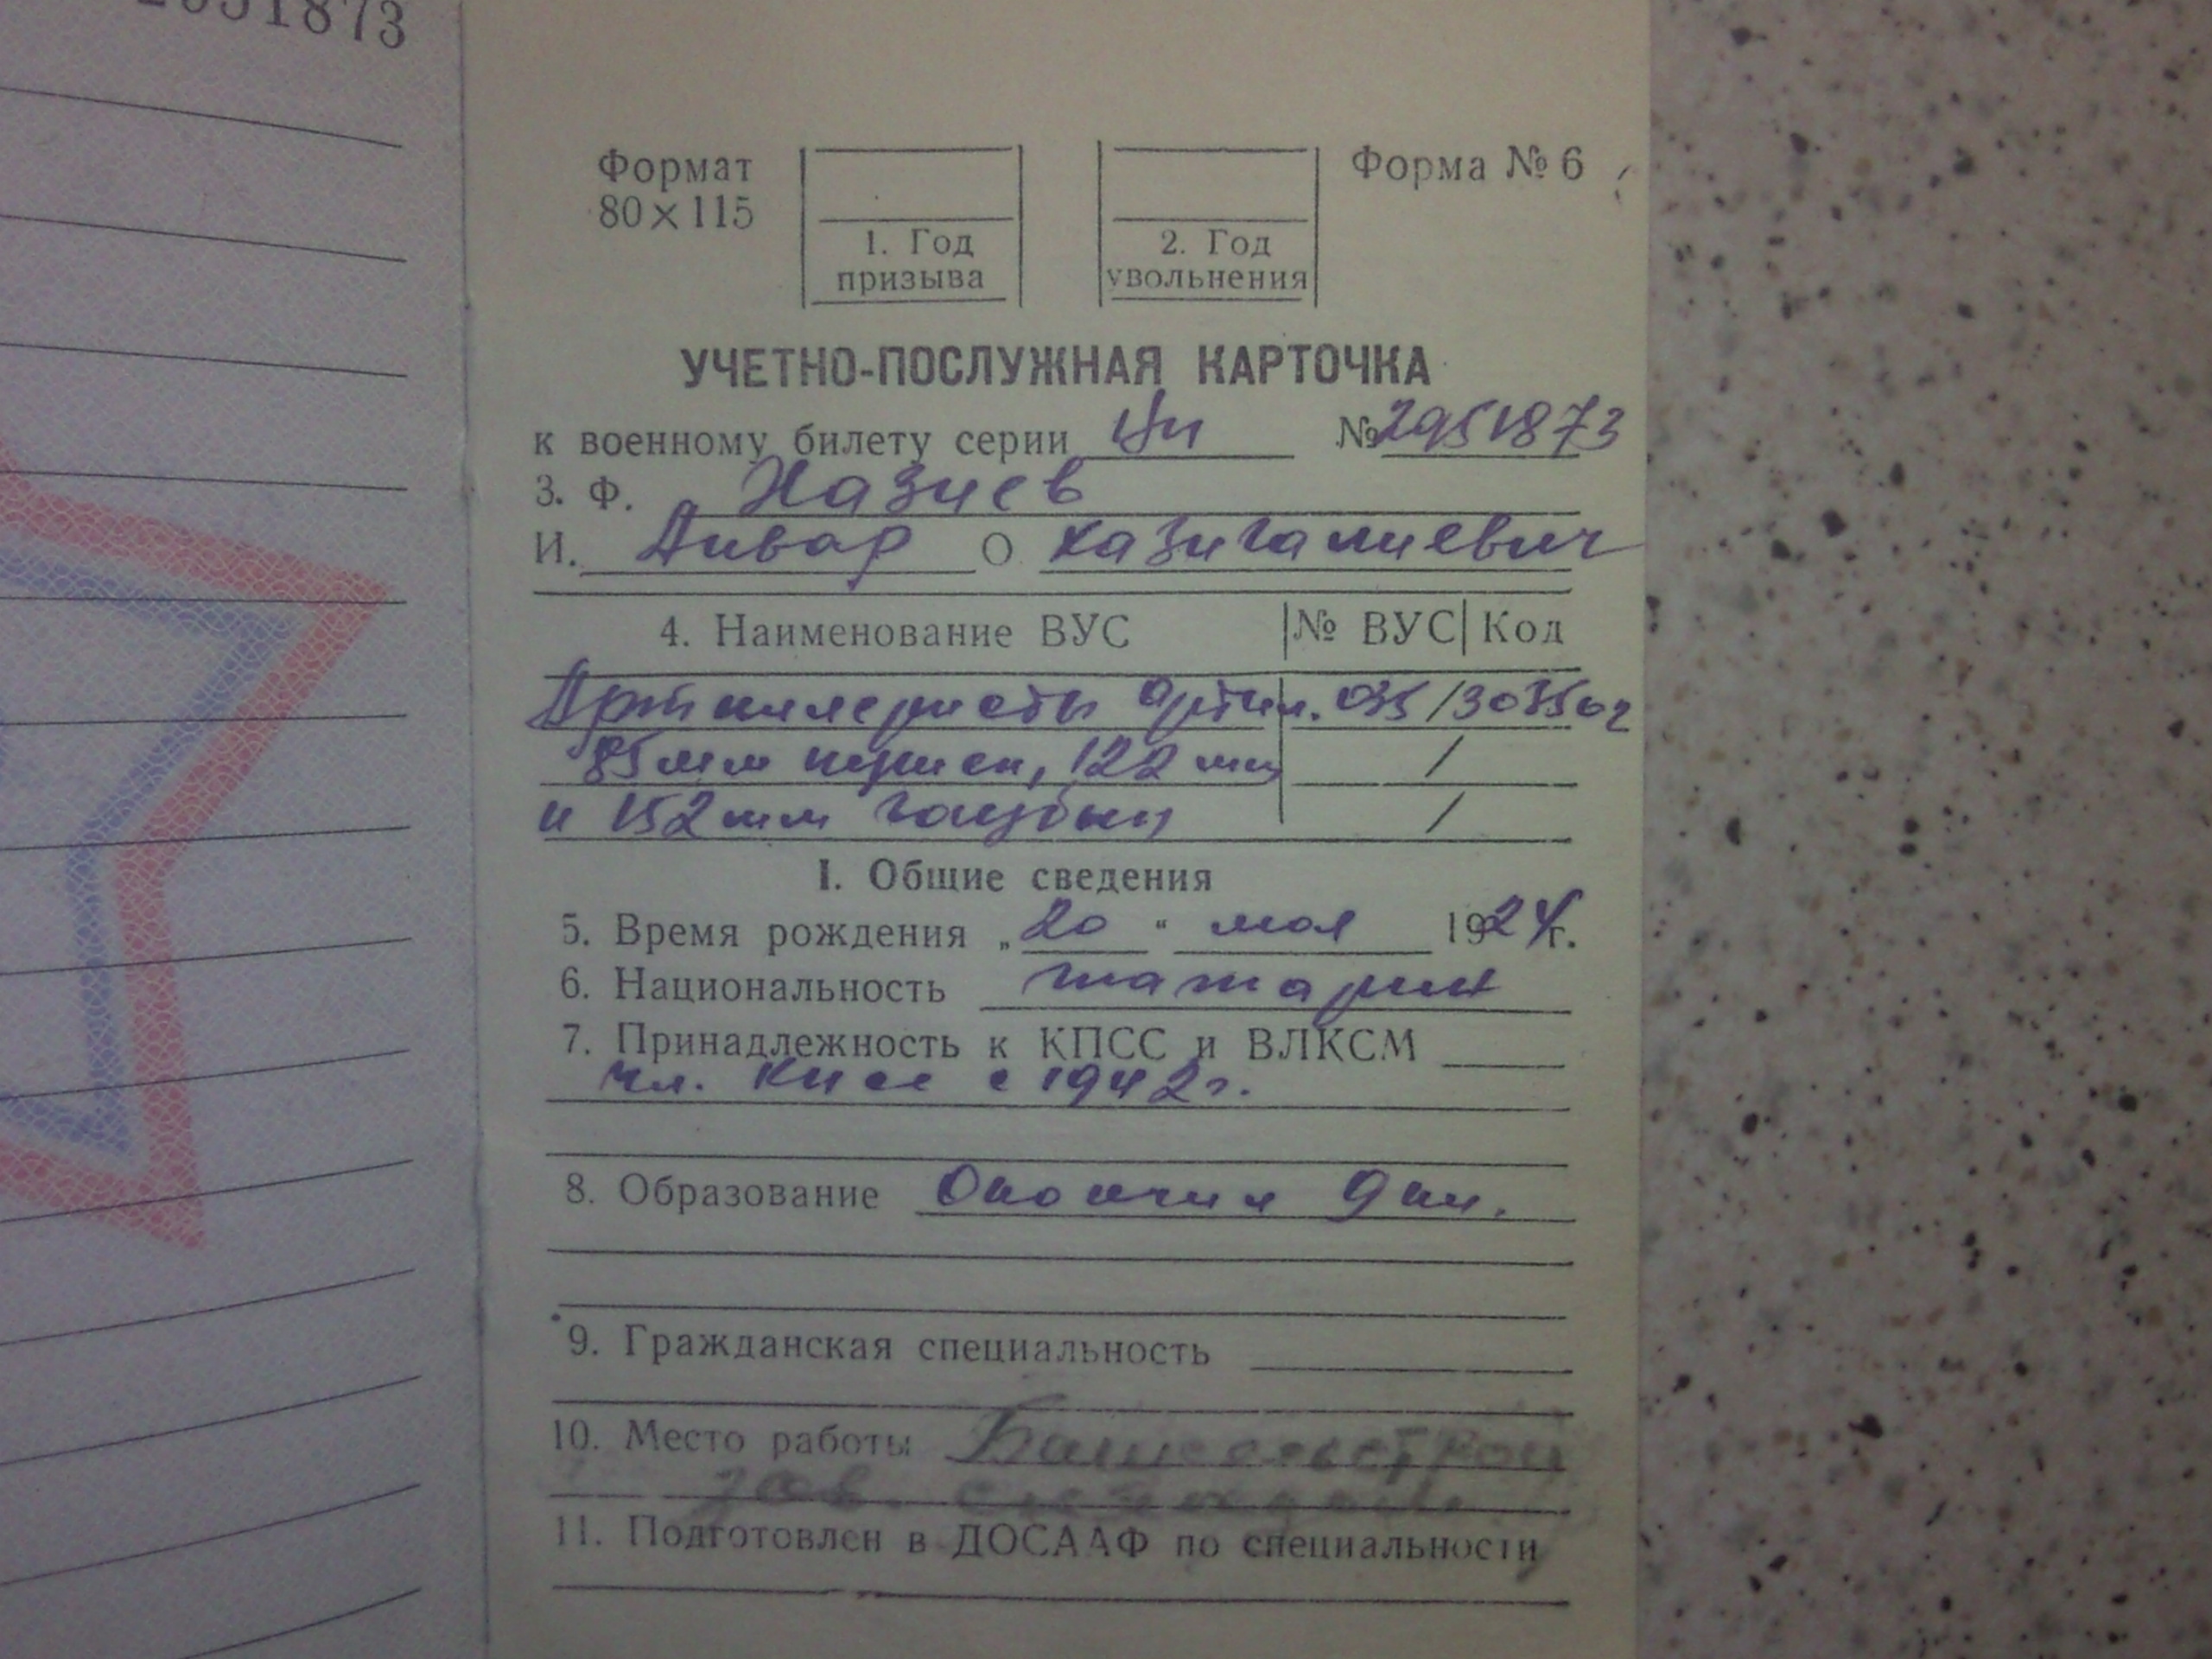 2951873
Формат
80×115
1. Год
призыва
2. Год
увольнения
Форма № 6
УЧЕТНО-ПОСЛУЖНАЯ КАРТОЧКА
к военному билету серии № 2951873
3. Ф. Назиев
И. Анвар О Казигалиевич
4. Наименование ВУС № ВУС Код
Артиллеристы артил. 035/303502
85 мм пушек, 122 мм /
и 152 мм гаубиц /
I. Общие сведения
5. Время рождения „20“ мая 1924г.
6. Национальность татарин
7. Принадлежность к КПСС и ВЛКСМ
чл. КПСС с 1942г.
8. Образование Окончил 9 кл.
9. Гражданская специальность
10. Место работы Башсельстрой
зав. складом
11. Подготовлен в ДОСААФ по специальности